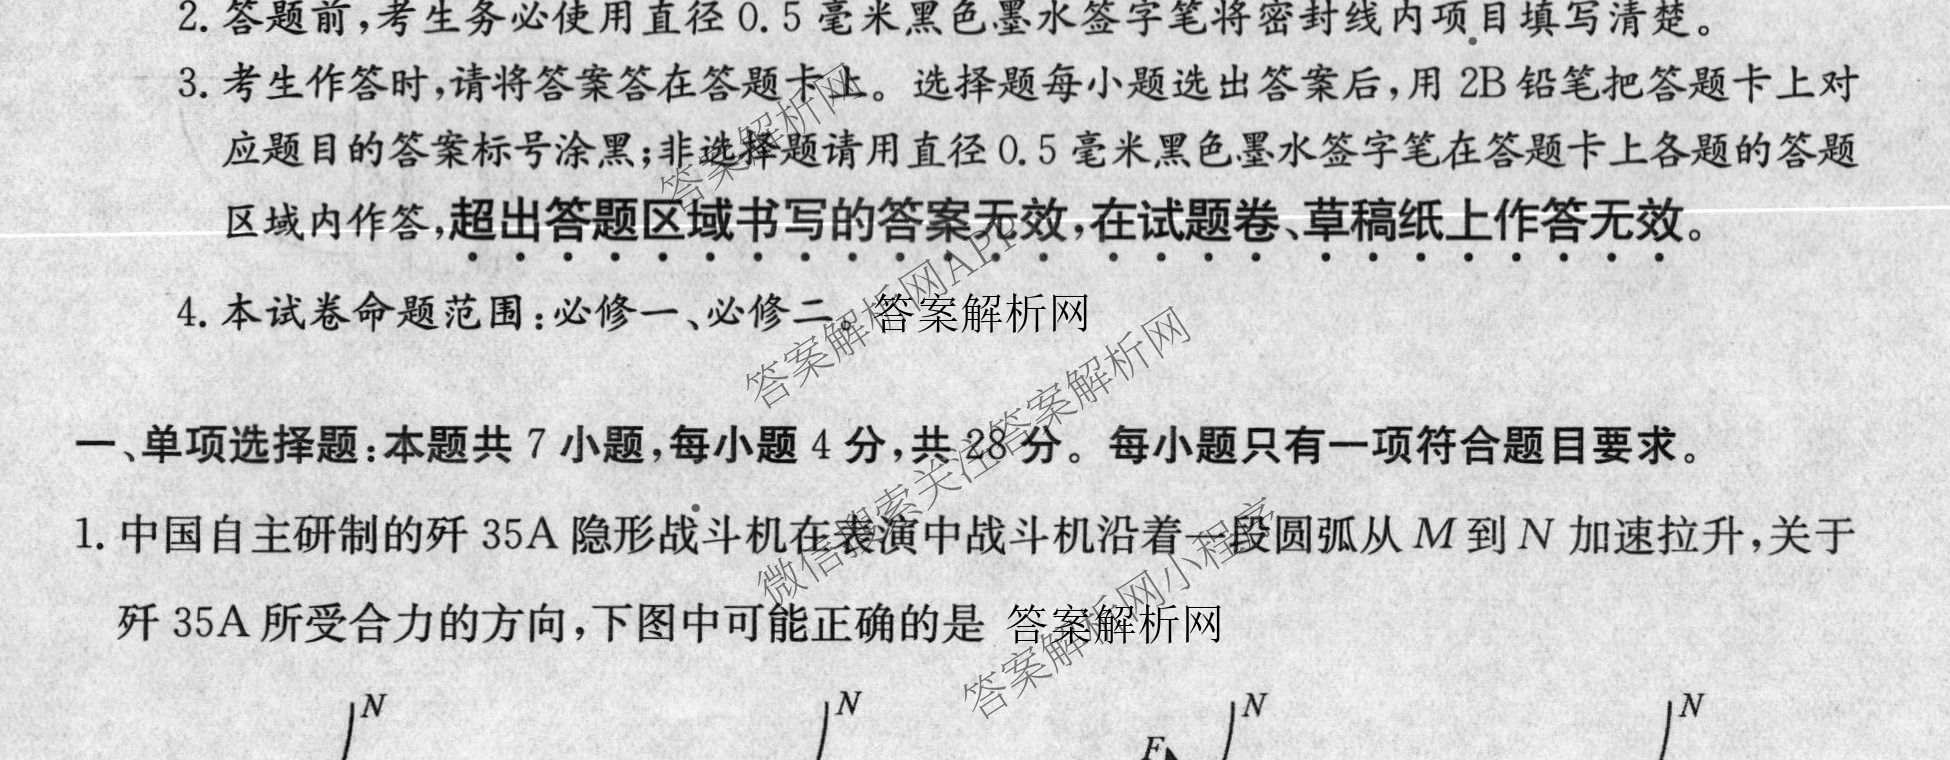 2. 答题前,考生务必使用直径 0.5 毫米黑色墨水签字笔将密封线内项目填写清楚。
3. 考生作答时,请将答案答在答题卡上。选择题每小题选出答案后,用 2B 铅笔把答题卡上对
应题目的答案标号涂黑;非选择题请用直径 0.5 毫米黑色墨水签字笔在答题卡上各题的答题
区域内作答,超出答题区域书写的答案无效,在试题卷、草稿纸上作答无效。
4. 本试卷命题范围:必修一、必修二。 答案解析网
一、单项选择题:本题共 7 小题,每小题 4 分,共 28 分。每小题只有一项符合题目要求。
1. 中国自主研制的歼 35A 隐形战斗机在表演中战斗机沿着一段圆弧从 M 到 N 加速拉升,关于
歼 35A 所受合力的方向,下图中可能正确的是 答案解析网
N N N N
F
答案解析网
答案解析网APP
微信搜索关注答案解析网
答案解析网小程序